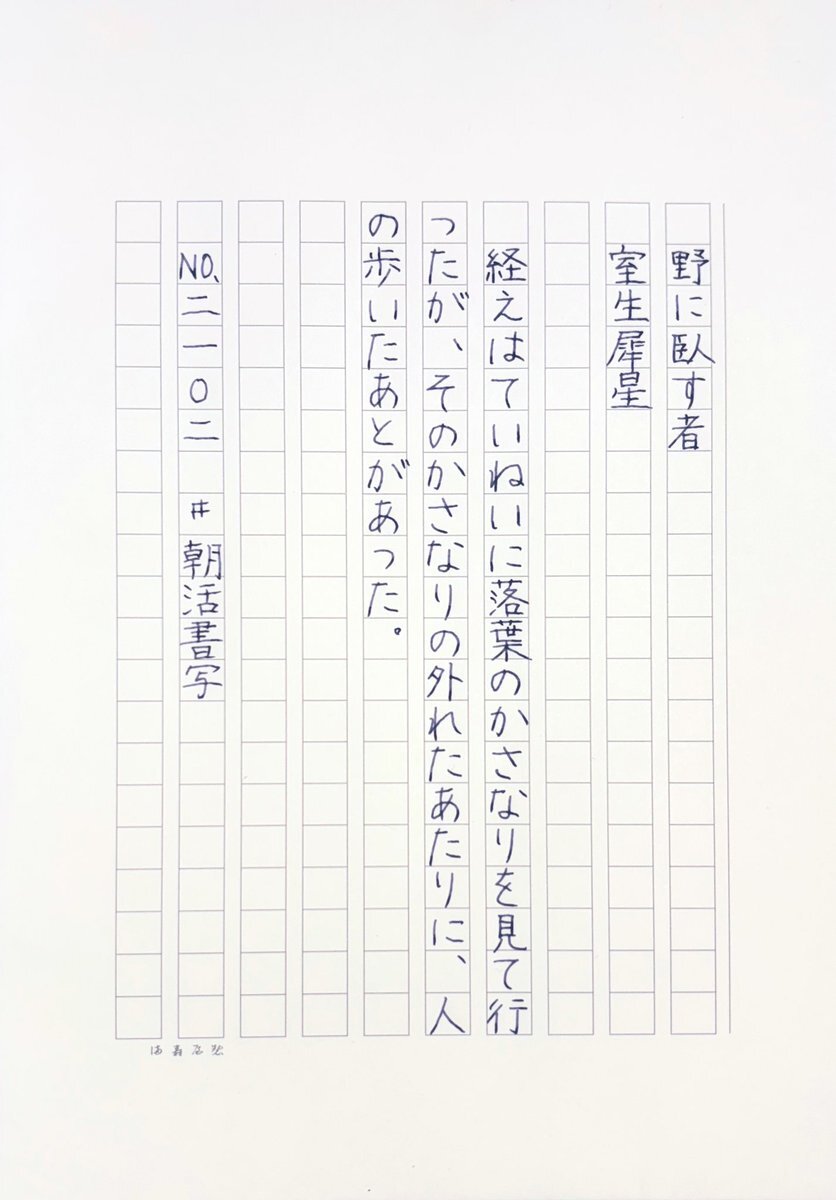 野に臥す者
室生犀星
経えはていねいに落葉のかさなりを見て行
ったが、そのかさなりの外れたあたりに、人
の歩いたあとがあった。
NO、二一〇二 #朝活書写